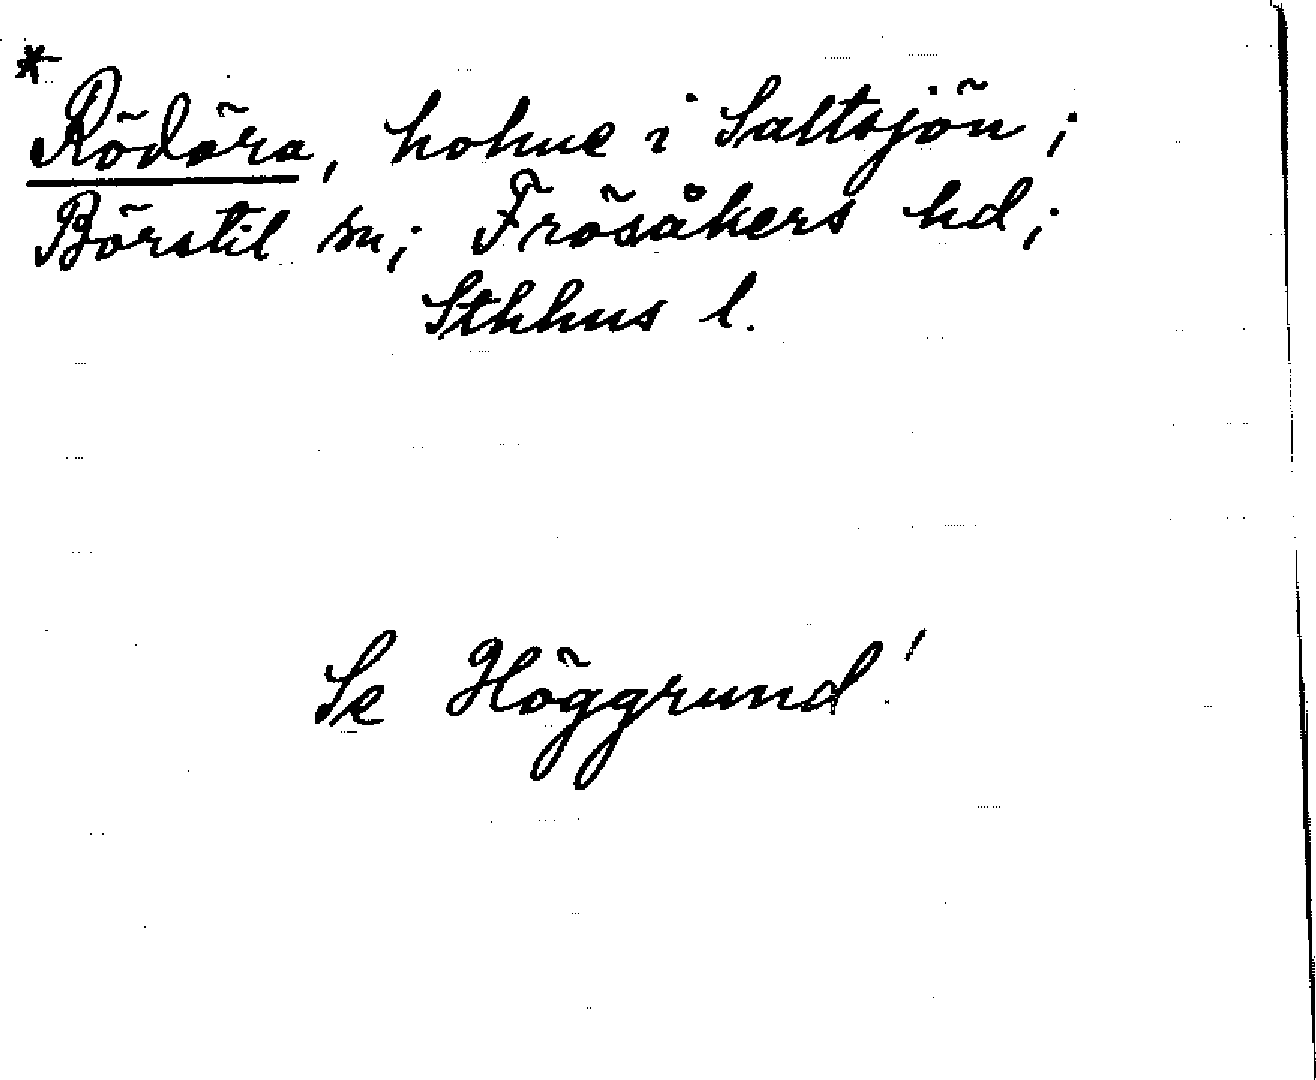 *
Rödöra, holme i Saltsjön;
Börstil sn; Frösåkers hd;
Sthlms l.
Se Höggrund!